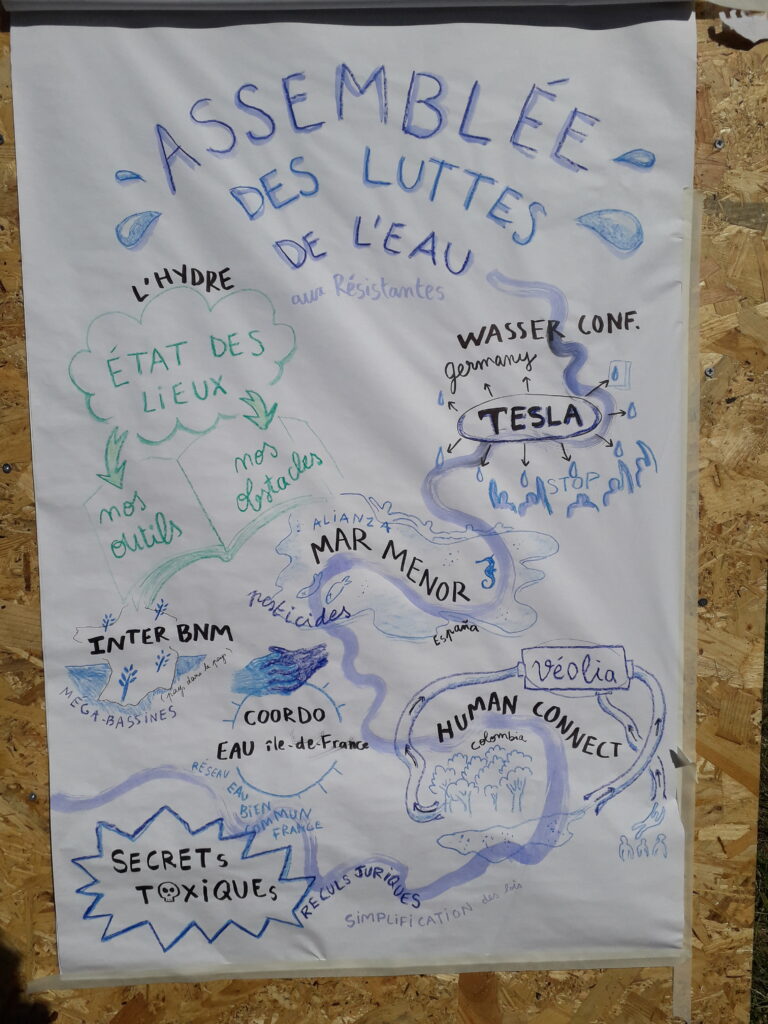 ASSEMBLÉE
DES LUTTES
DE L'EAU
aux Résistantes
L'HYDRE
ÉTAT DES
LIEUX
nos
outils
nos
obstacles
WASSER CONF.
germany
TESLA
STOP
ALIANZA
MAR MENOR
pesticides
España
INTER BNM
(pays dans le pays)
MEGA-BASSINES
COORDO
EAU île-de-France
RÉSEAU
EAU
BIEN
COMMUN
FRANCE
Véolia
HUMAN CONNECT
Colombia
SECRETs
TOXiQUEs
RECULS JURIQUES
SiMPLiFiCATiON des lois